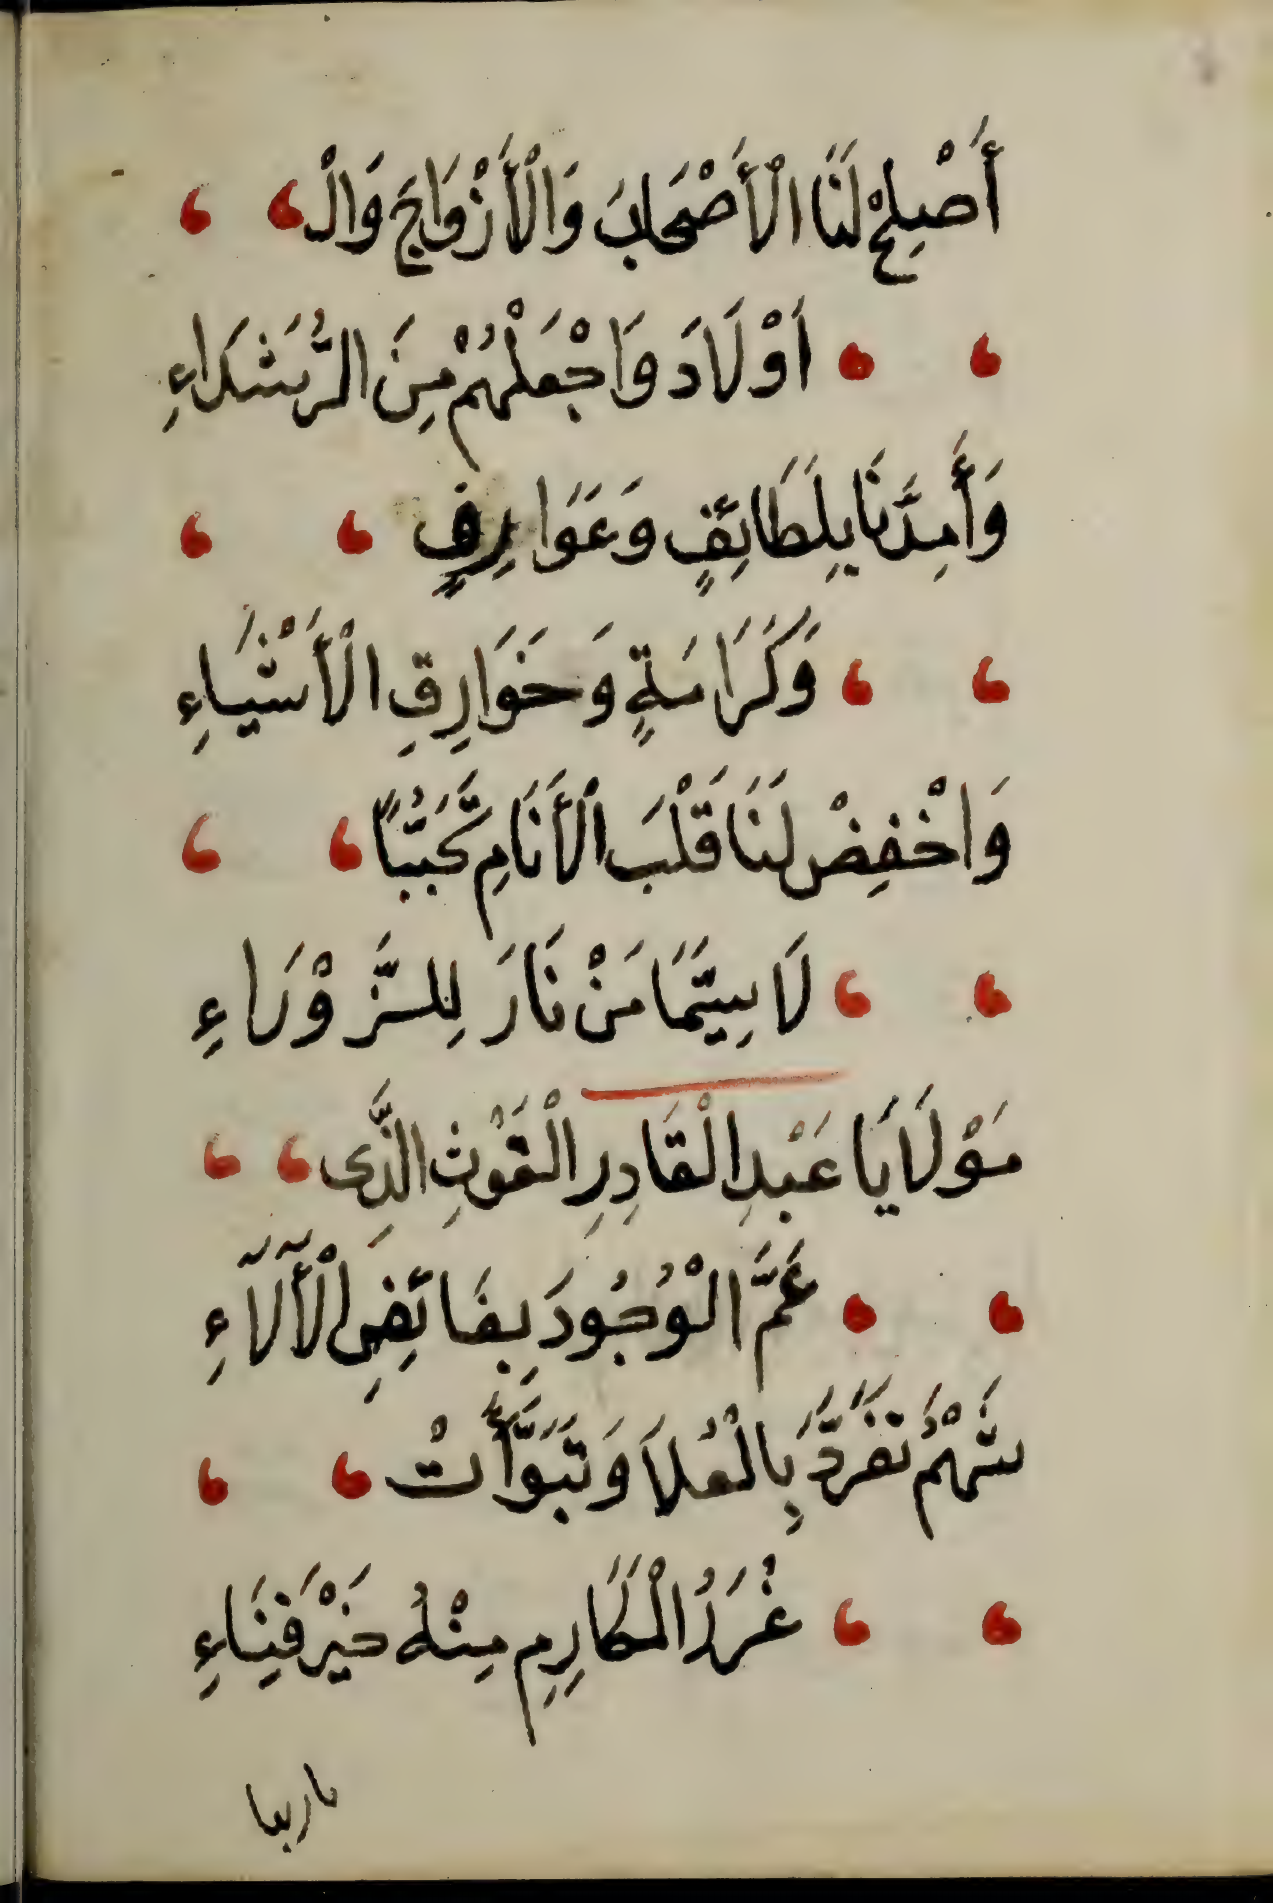 أَصْلِحْ لَنَا الْأَصْحَابَ وَالْأَزْوَاجَ وَالْـ
أَوْلَادَ وَاجْعَلْهُمْ مِنَ الرُّشَدَاءِ
وَأَمِدَّنَا بِلَطَائِفٍ وَعَوَارِفٍ
وَكَرَامَةٍ وَخَوَارِقِ الْأَشْيَاءِ
وَاخْفِضْ لَنَا قَلْبَ الْأَنَامِ تَحَبُّبًا
لَا سِيَّمَا مَنْ نَارَ لِلزَّوْرَاءِ
مَوْلَايَا عَبْدِ الْقَادِرِ الْغَوْثِ الَّذِى
عَمَّ الْوُجُودَ بِفَائِضِ الْآلَآءِ
شَهْمٌ تَفَرَّدَ بِالْعُلَا وَتَبَوَّأَتْ
غُرَرُ الْمَكَارِمِ مِنْهُ خَيْرَ فِنَاءِ
يا ربنا